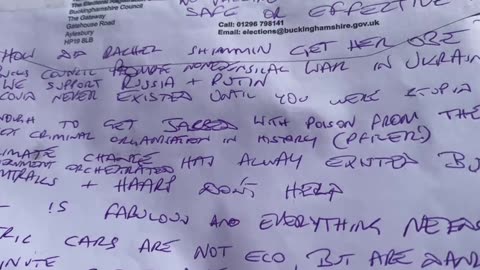 The Electoral Registration
Buckinghamshire Council
The Gateway
Gatehouse Road
Aylesbury
HP19 8LB
SAFE OR EFFECTIVE
Call: 01296 798141
Email: elections@buckinghamshire.gov.uk
HOW DID RACHEL SHIMMIN GET HER OBE ?
BUCKS COUNCIL PROMOTE NONSENSICAL WAR IN UKRAIN
WE SUPPORT RUSSIA + PUTIN
COVID NEVER EXISTED UNTIL YOU WERE STUPID
ENOUGH TO GET JABBED WITH POISON FROM THE
CRIMINAL ORGANISATION IN HISTORY (PFIZER)
CLIMATE CHANGE HAS ALWAY EXISTED BU
ORCHESTRATED
+ HAARP DON'T HELP
IS FABULOUS AND EVERYTHING NEEDS
RIC CARS ARE NOT ECO, BUT ARE DAN